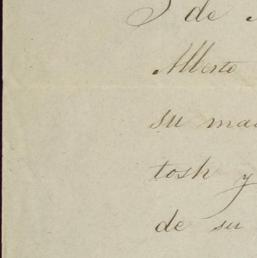 de
Alberto
su
tosh y
de su